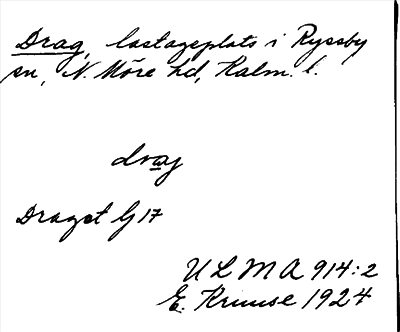 Drag, lastageplats i Ryssby
sn, N. Möre hd, Kalm. l.
drag
Draget G 17
ULMA 914:2
E. Kruuse 1924